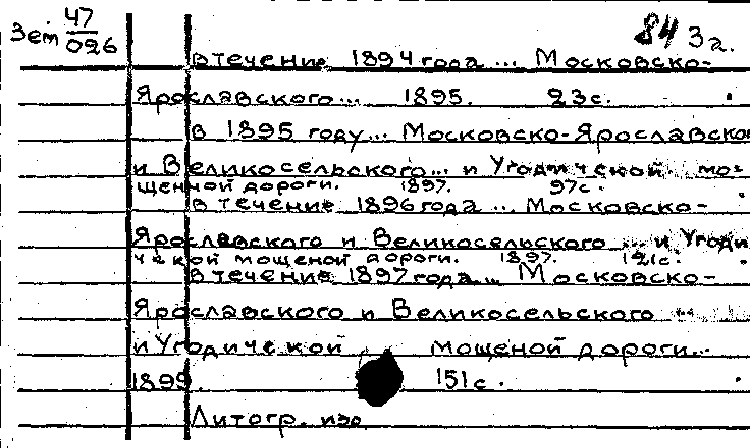 Зет 47/026
843г.
в течение 1894 года ... Московско-
Ярославского ... 1895. 23с.
в 1895 году ... Московско-Ярославско
и Великосельского ... и Угодической мо-
щенной дороги. 1897. 97с.
в течение 1896 года ... Московско-
Ярославского и Великосельского ... и Угоди
ческой мощеной дороги. 1897. 121с.
в течение 1897 года ... Московско-
Ярославского и Великосельского
и Угодической мощеной дороги ...
1899. 151с.
Литогр. изд